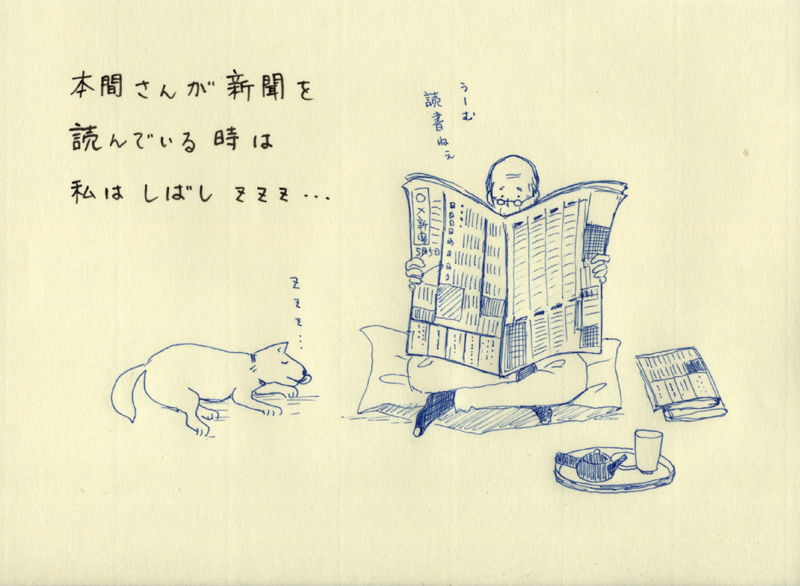 本間さんが新聞を
読んでいる時は
私はしばしzzz…
うーむ
読書ねぇ
〇×新聞
5月5日
zzz…